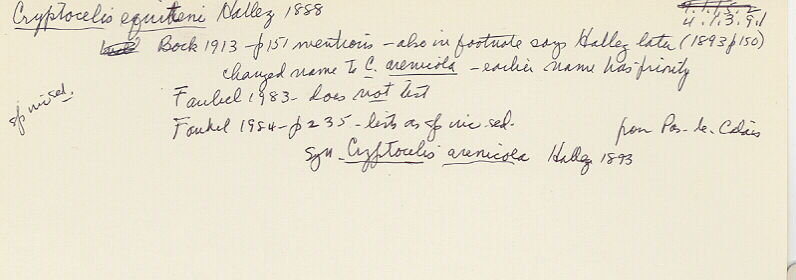 Cryptocelis equitteni Hallez 1888
4.1.3.9.1
Bock 1913 - p151 mentions - also in footnote says Hallez later (1893 p150)
changed name to C. arenicola - earlier name has priority
Faubel 1983 - does not list
sp inc sed.
Faubel 1984 - p235 - lists as sp inc sed.
from Pas-de-Calais
Syn - Cryptocelis arenicola Hallez 1893